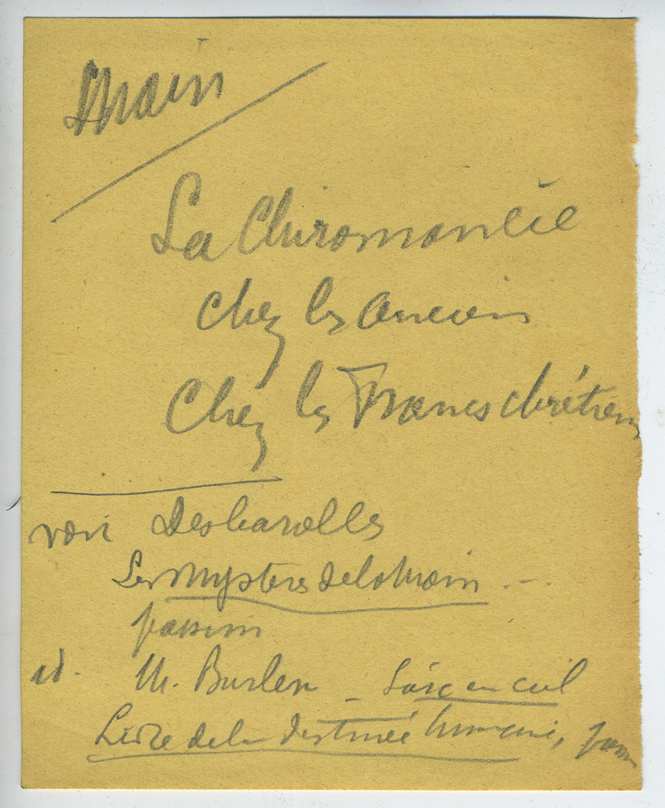 Main
La Chiromancie
chez les anciens
Chez les Francs chrétiens
voir Desbarolles
Les Mystères de la Main ...
passim
id. M. Burlen _ en ciel
Livre de la destinée humaine,